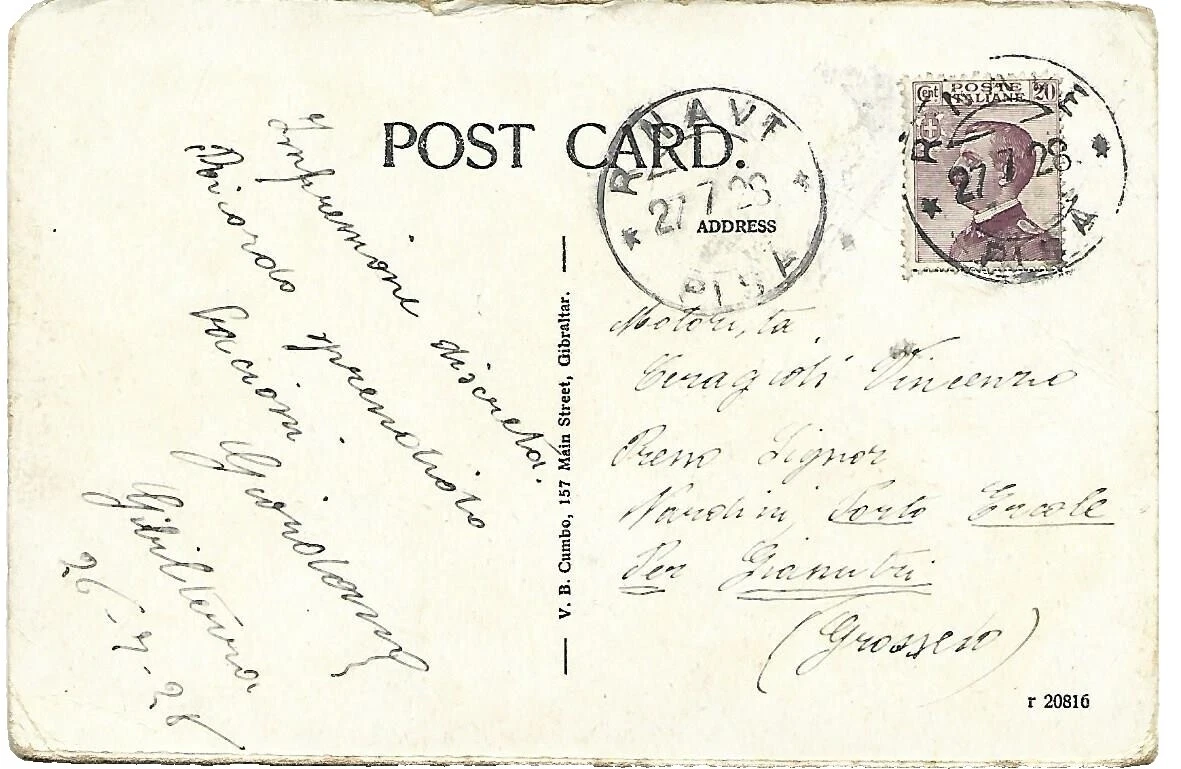 POST CARD.
ADDRESS
V. B. Cumbo, 157 Main Street, Gibraltar.
r 20816
Cent POSTE ITALIANE 20
R. NAVE
27 7 28
PISA
R. NAVE
27 7 28
PISA
Impressione discreta.
Ricordo
bacioni
Gibilterra
26-7-28
Motorista
Ceragioli Vincenzo
Presso Signor
Nardini, Porto Ercole
Per Giannutri
(Grosseto)